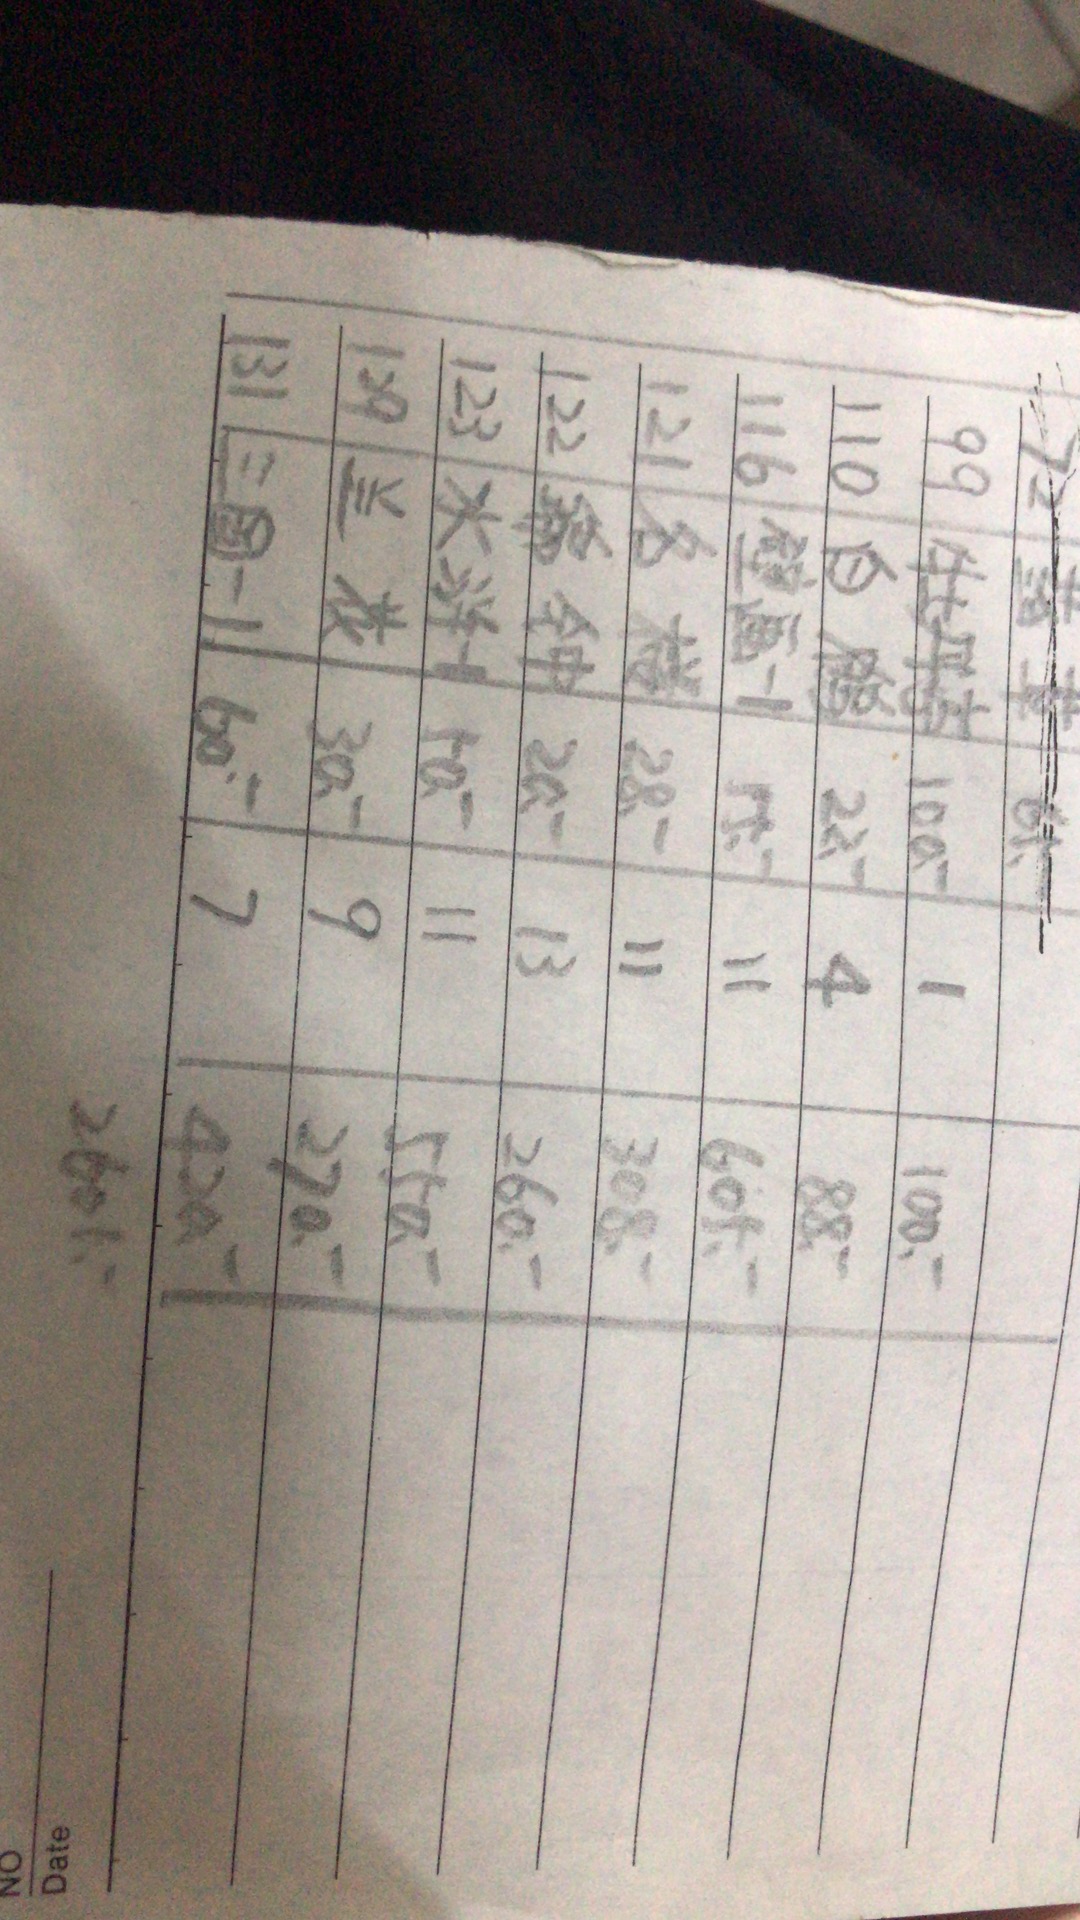 72
99 牡丹亭 100.- 1 100.-
110 白 22.- 4 88.-
116 壁画-1 55.- 11 605.-
121 名楼 28.- 11 308.-
122 编钟 20.- 13 260.-
123 水浒-1 50.- 11 550.-
129 兰花 30.- 9 270.-
131 三国-1 60.- 7 420.-
2601.-
NO
Date